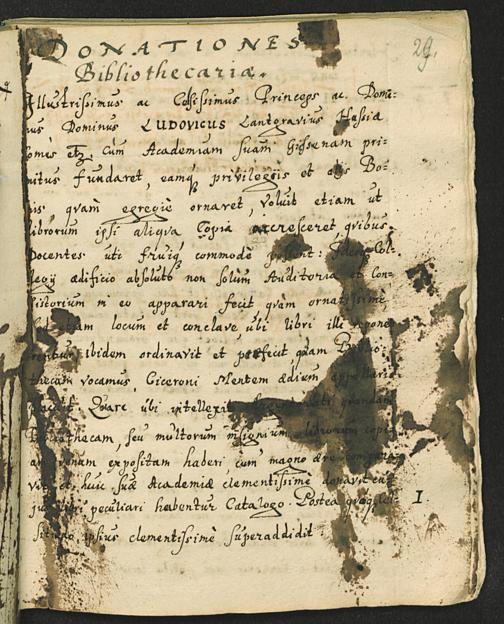 DONATIONES
Bibliothecariæ.
29.
Illustrissimus ac Celsissimus Princeps ac Domi=
us Dominus LUDOVICUS Lantgravius Hassiæ
omes etz. Cum Academiam suam Gissenam pri=
mitus fundaret, eamq privilegiis et aliis Bo=
is quàm egregiè ornaret, voluit etiam ut
librorum ipsi aliqva Copia accresceret quibus
Docentes uti fruiq commodè possent: Ideoq Col=
legij ædificio absoluto non solum Auditoria et Con=
sistorium in eo apparari fecit qvàm ornatissimè,
sed etiam locum et conclave ubi libri illi repone
rentur ibidem ordinavit et perfecit, quam Biblio=
thecam vocamus, Ciceroni Mentem ædium appellare
placuit. Quare ubi intellexit quandam
Bibliothecam, seu multorum insignium librorum copi
am venum expositam haberi eam magno ære compara
vit et huic suæ Academiæ clementissimè donavit
libri peculiari habentur Catalogo. Postea
1
ipsius clementissimè superaddidit